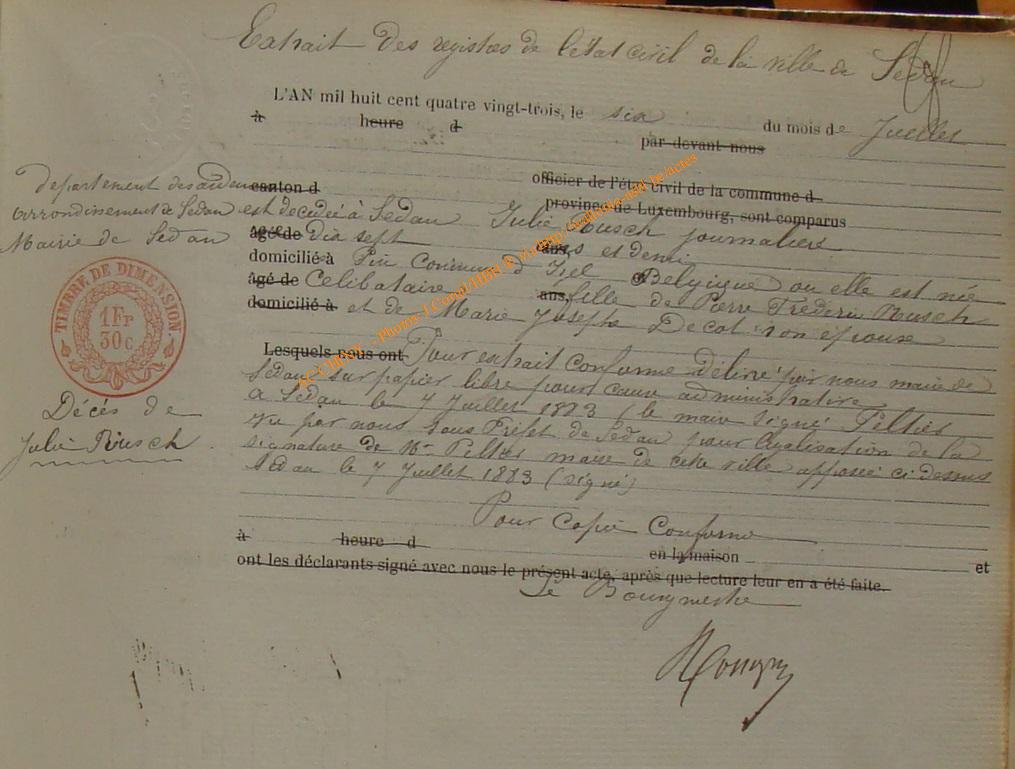 Extrait des registres de l'état civil de la ville de Sedan
L'AN mil huit cent quatre vingt-trois, le six du mois de Juillet
à heure d par devant nous
Departement des ardennes canton d officier de l'état civil de la commune d
province de Luxembourg, sont comparus
arrondissement de Sedan est decedée à Sedan Julie Rusch journalière
Mairie de Sedan
âgé de dix sept ans et demi
domicilié à Pin Commune d Izel Belgique ou elle est née
âgé de Celibataire ans, fille de Pierre Frederic Rusch
domicilié à et de Marie Josephe Decot son épouse
TIMBRE DE DIMENSION
1 FR
50 C.
Lesquels nous ont Pour extrait conforme délivré par nous maire de
Sedan sur papier libre pour cause administrative
a Sedan le 7 Juillet 1883 (le maire signé Peltier
Vu par nous Sous Préfet de Sedan pour légalisation de la
signature de Mr Peltier maire de cette ville apposée ci dessus
Sedan le 7 Juillet 1883 (signé)
Décés de
Julie Rusch
Pour Copie Conforme
à heure d en la maison et
ont les déclarants signé avec nous le présent acte, après que lecture leur en a été faite.
Le Bourgmestre